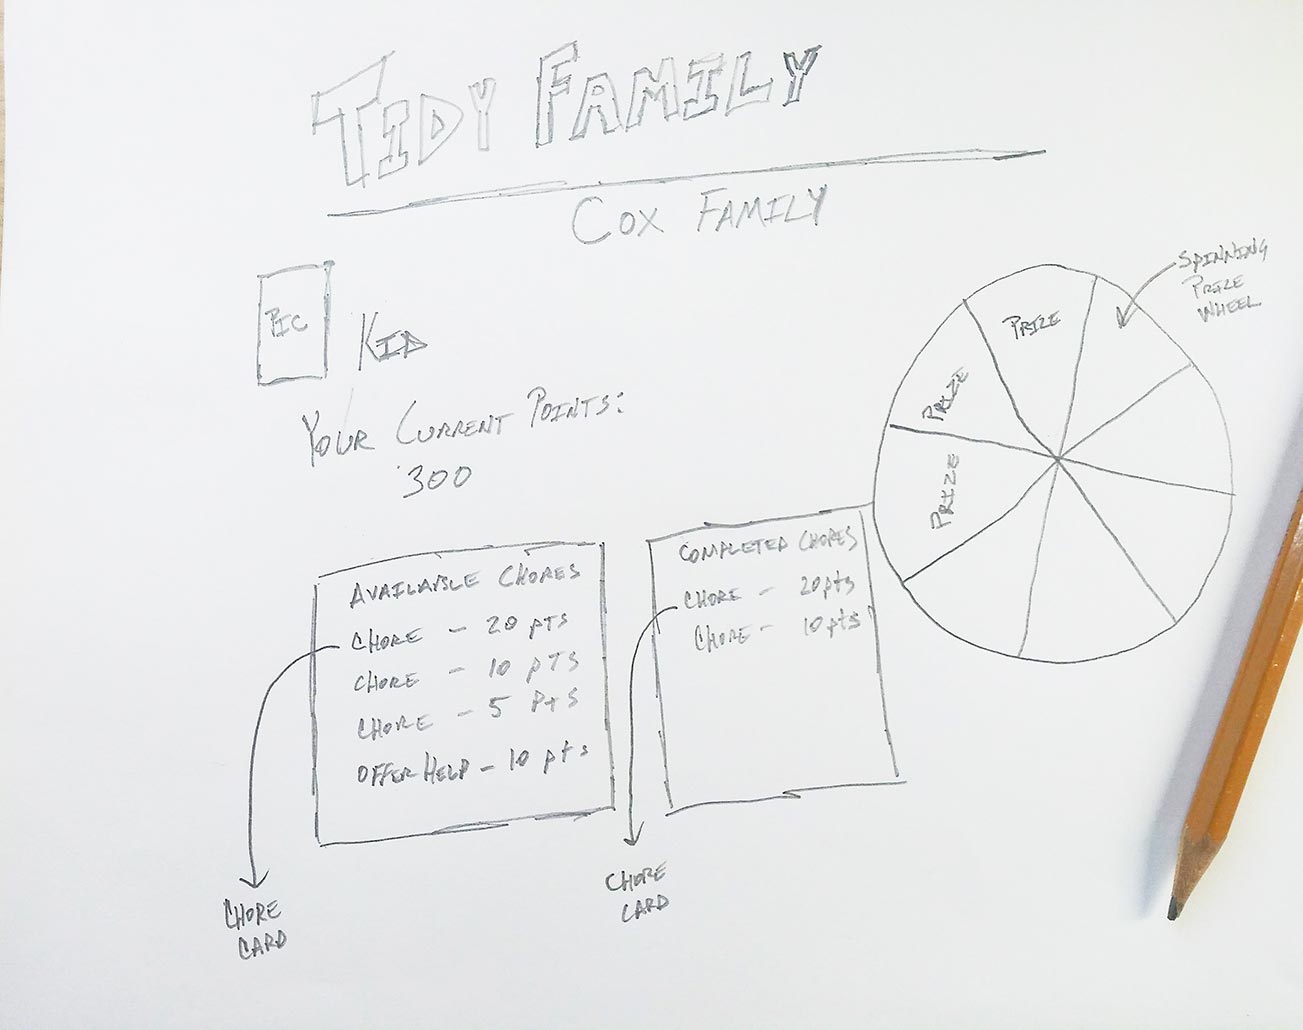 TIDY FAMILY
COX FAMILY
PIC
KID
YOUR CURRENT POINTS:
300
SPINNING
PRIZE
WHEEL
PRIZE
PRIZE
PRIZE
AVAILABLE CHORES
CHORE - 20 pTS
CHORE - 10 pTS
CHORE - 5 PtS
OFFER HELP - 10 pts
COMPLETED CHORES
CHORE - 20pts
CHORE - 10pts
CHORE
CARD
CHORE
CARD